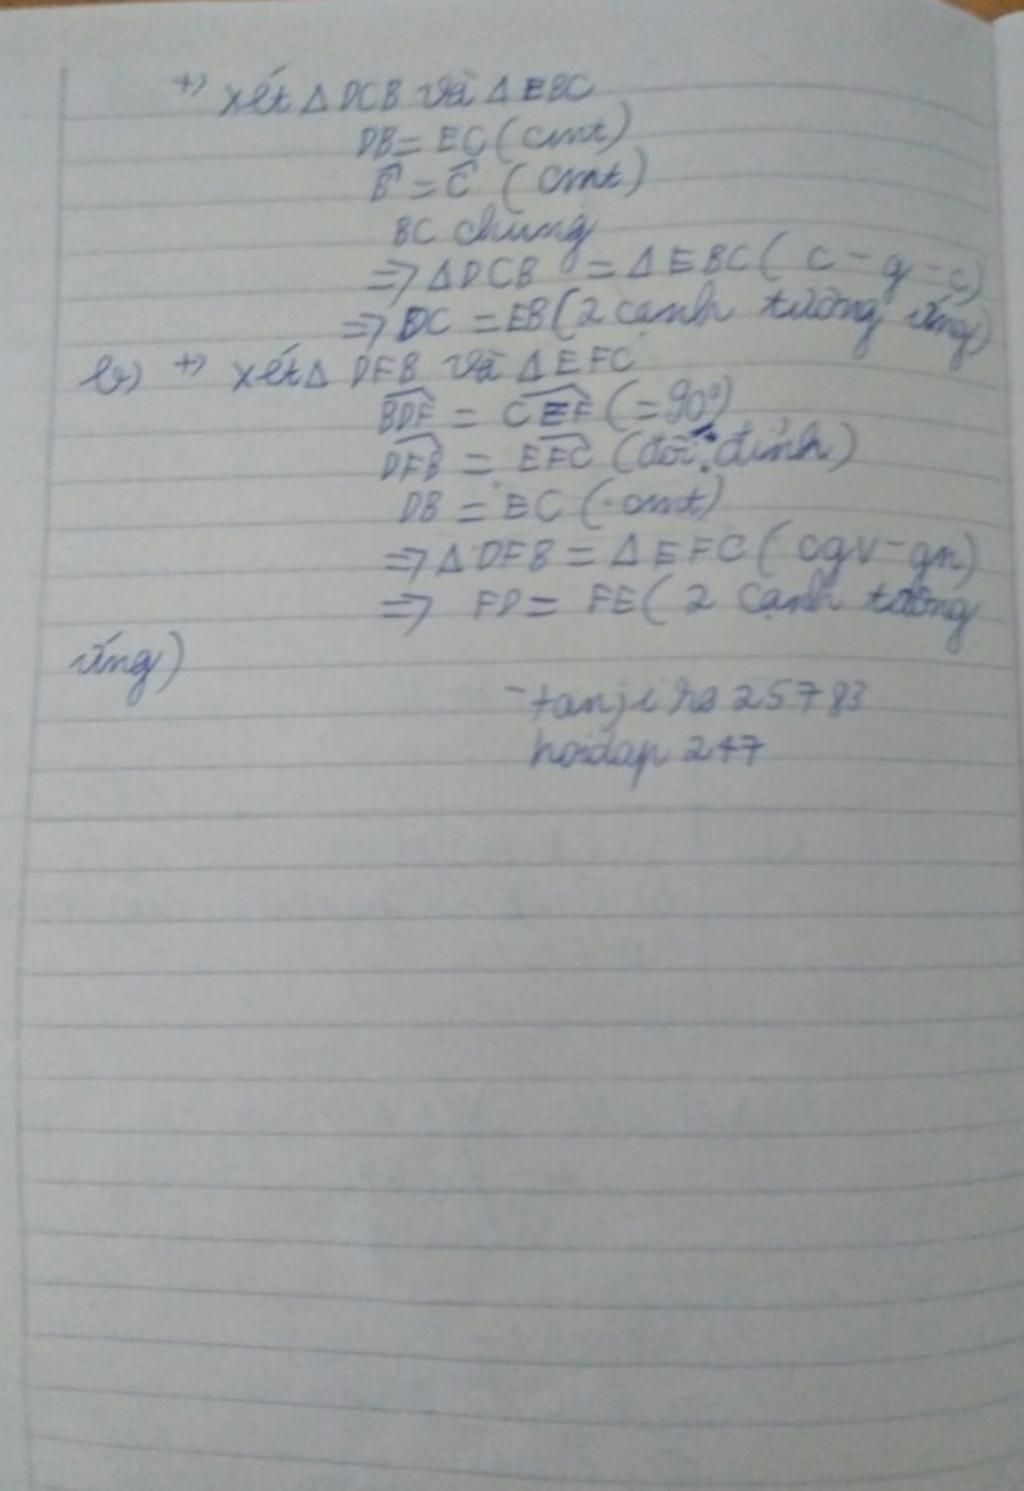 +) xét Δ DCB và Δ EBC
DB = EC (cmt)
B̂ = Ĉ (cmt)
BC chung
=> Δ DCB = Δ EBC (c-g-c)
=> DC = EB (2 cạnh tương ứng)
b) +) xét Δ DFB và Δ EFC
\widehat{BDF} = \widehat{CEF} (=90°)
\widehat{DFB} = \widehat{EFC} (đối đỉnh)
DB = EC (cmt)
=> Δ DFB = Δ EFC (cgv-gn)
=> FD = FE (2 cạnh tương
ứng)
-tanjiha25783
hoidap 247